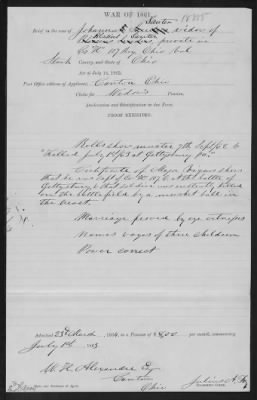 WAR OF 1861.
Brief in the case of Johannah widow of
private in
Co "H" 107 Reg Ohio Vol.
Stark County and State of Ohio
Act of July 14, 1862.
Post Office address of Applicant, Canton Ohio
Claim for Widow's Pension.
Declaration and Identification in due Form.
PROOF EXHIBITED.
Rolls show muster 9th Sept/62 &
"Killed July 1st/63 at Gettysburg Pa."
Certificate of Major shows
that he was Capt of Co "H" 107 at the battle of
Gettysburg & that soldier was instantly killed
on the battle field by a musket ball in
the breast.
Marriage proved by eye witnesses
Names & ages of three children
Power correct
Admitted 23d March, 1864, to a Pension of 8.00 per month, commencing
July 1st 1863.
W. K. Alexander Esq
Canton
Ohio
Julius